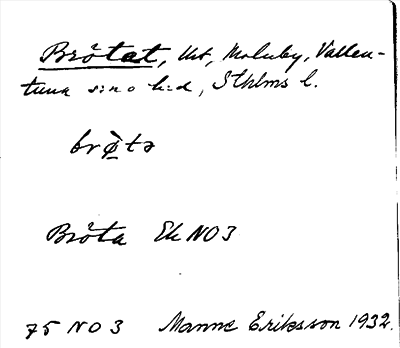 Brötat, Ut, Molnby, Vallen-
tuna sn o hd, Sthlms l.
brø̀tə
Bröta Ek NO3
75 NO 3 Manne Eriksson 1932.